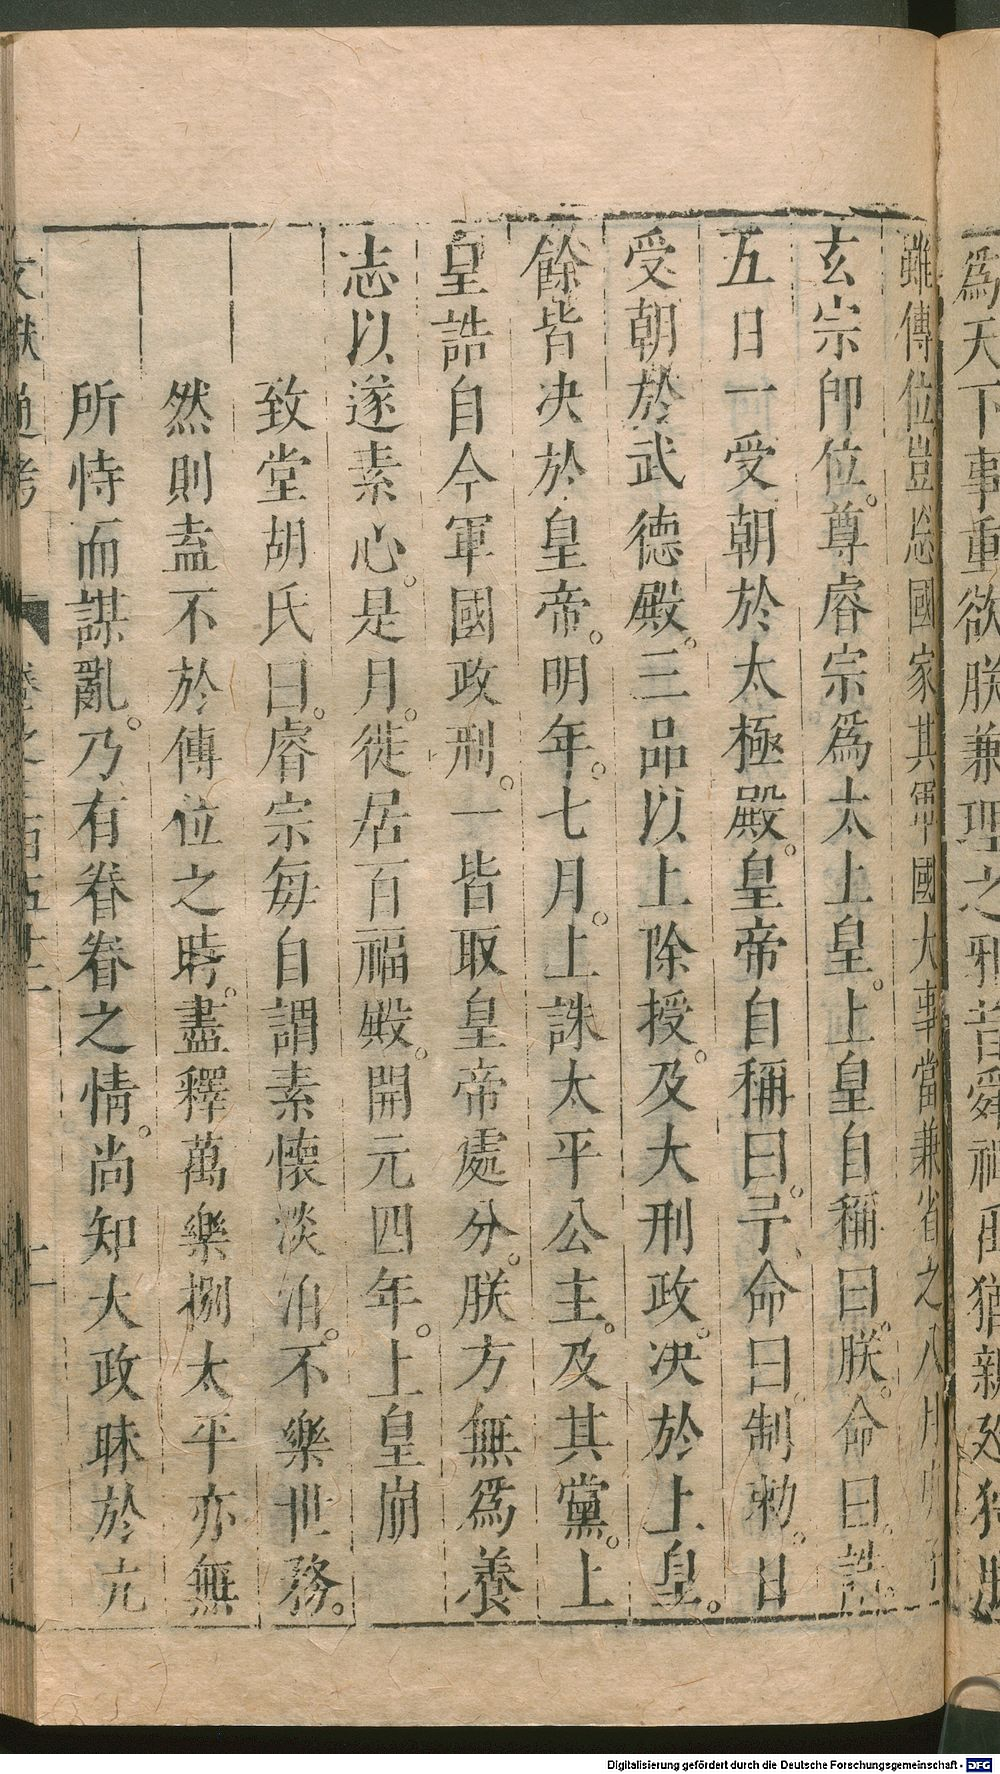 爲天下事重欲朕兼理之邪昔舜禪禹猶親廵狩朕
雖傳位豈忘國家其軍國大事當兼省之八月庚子
玄宗卽位。尊睿宗爲太上皇。上皇自稱曰。朕。命曰。誥。
五日一受朝於太極殿。皇帝自稱曰。予、命曰。制勑。日
受朝於武德殿。三品以上除授。及大刑政。決於上皇。
餘皆決於皇帝。明年。七月。上誅太平公主。及其黨。上
皇誥自今軍國政刑。一皆取皇帝處分。朕方無爲養
志以遂素心。是月。徙居百福殿。開元四年。上皇崩
致堂胡氏曰。睿宗每自謂素懷淡泊。不樂世務。
然則盍不於傳位之時。盡釋萬樂捌太平亦無
所恃而謀亂。乃有眷眷之情。尚知大政昧於亢
文獻通考
卷之二百五十二
十一
Digitalisierung gefördert durch die Deutsche Forschungsgemeinschaft - DFG